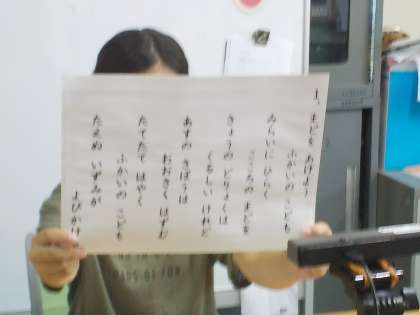 1、まどを あけよう
ふかいの こども
みらいに ひらく
こころの まどを
きょうの どりょくは
くるしい けれど
あすの きぼうは
おおきく はずむ
たてたて はやく
ふかいの こども
たえぬ いずみが
よびかけ